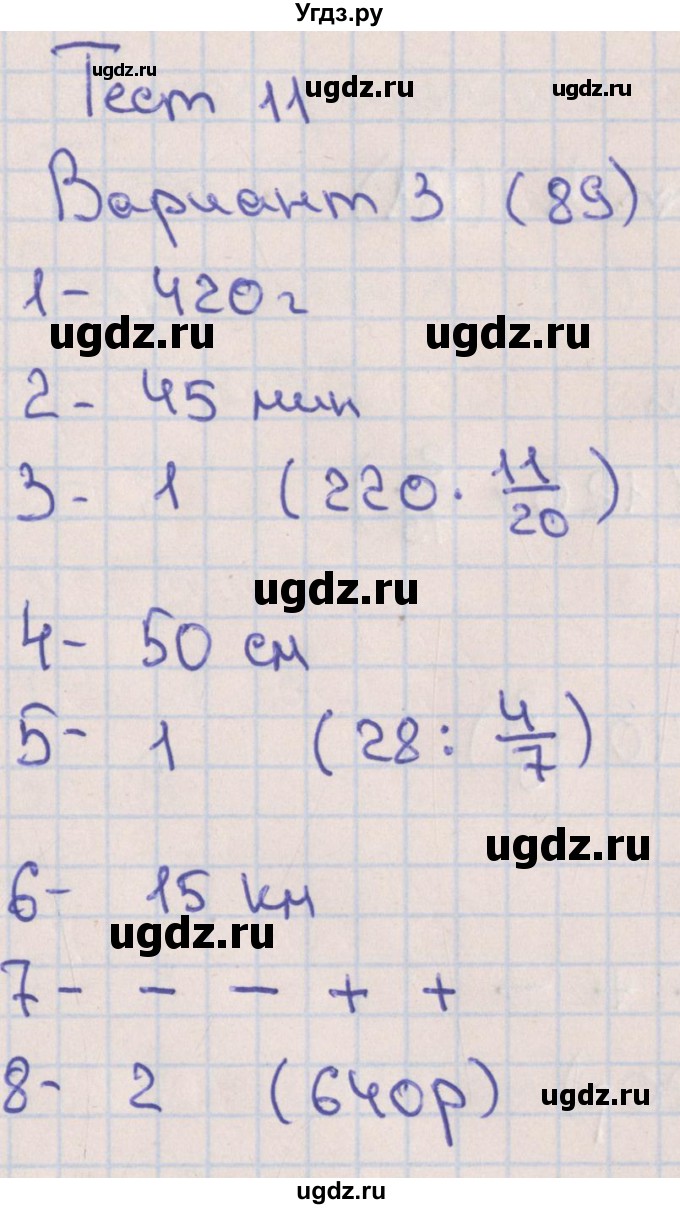 Угдз.ру
ugdz.ru
Тест 11
ugdz.ru ugdz.ru
Вариант 3 (89)
1- 420 г
ugdz.ru ugdz.ru
2- 45 мин
3- 1 (220 · 11/20)
ugdz.ru
4- 50 см
5- 1 (28 : 4/7)
ugdz.ru
6- 15 км
ugdz.ru
7- - - + +
8- 2 (640р)
ugdz.ru
ugdz.ru